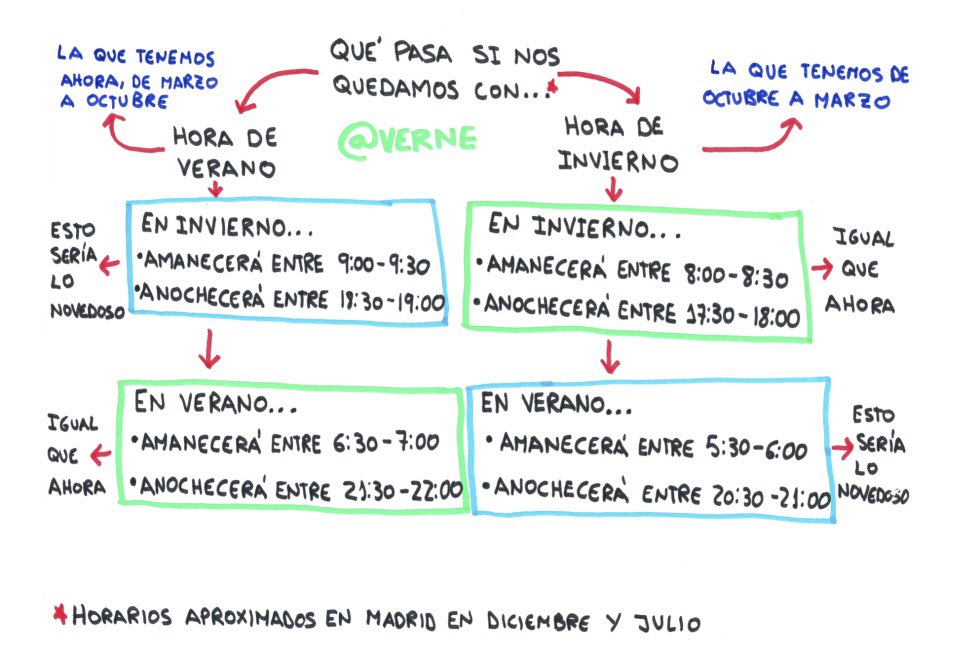 QUÉ PASA SI NOS
QUEDAMOS CON...*
LA QUE TENEMOS
AHORA, DE MARZO
A OCTUBRE
LA QUE TENEMOS DE
OCTUBRE A MARZO
@VERNE
HORA DE
VERANO
HORA DE
INVIERNO
ESTO
SERÍA
LO
NOVEDOSO
EN INVIERNO...
•AMANECERÁ ENTRE 9:00-9:30
•ANOCHECERÁ ENTRE 18:30-19:00
EN INVIERNO...
•AMANECERÁ ENTRE 8:00-8:30
•ANOCHECERÁ ENTRE 17:30-18:00
IGUAL
QUE
AHORA
IGUAL
QUE
AHORA
EN VERANO...
•AMANECERÁ ENTRE 6:30-7:00
•ANOCHECERÁ ENTRE 21:30-22:00
EN VERANO...
•AMANECERÁ ENTRE 5:30-6:00
•ANOCHECERÁ ENTRE 20:30-21:00
ESTO
SERÍA
LO
NOVEDOSO
*HORARIOS APROXIMADOS EN MADRID EN DICIEMBRE Y JULIO